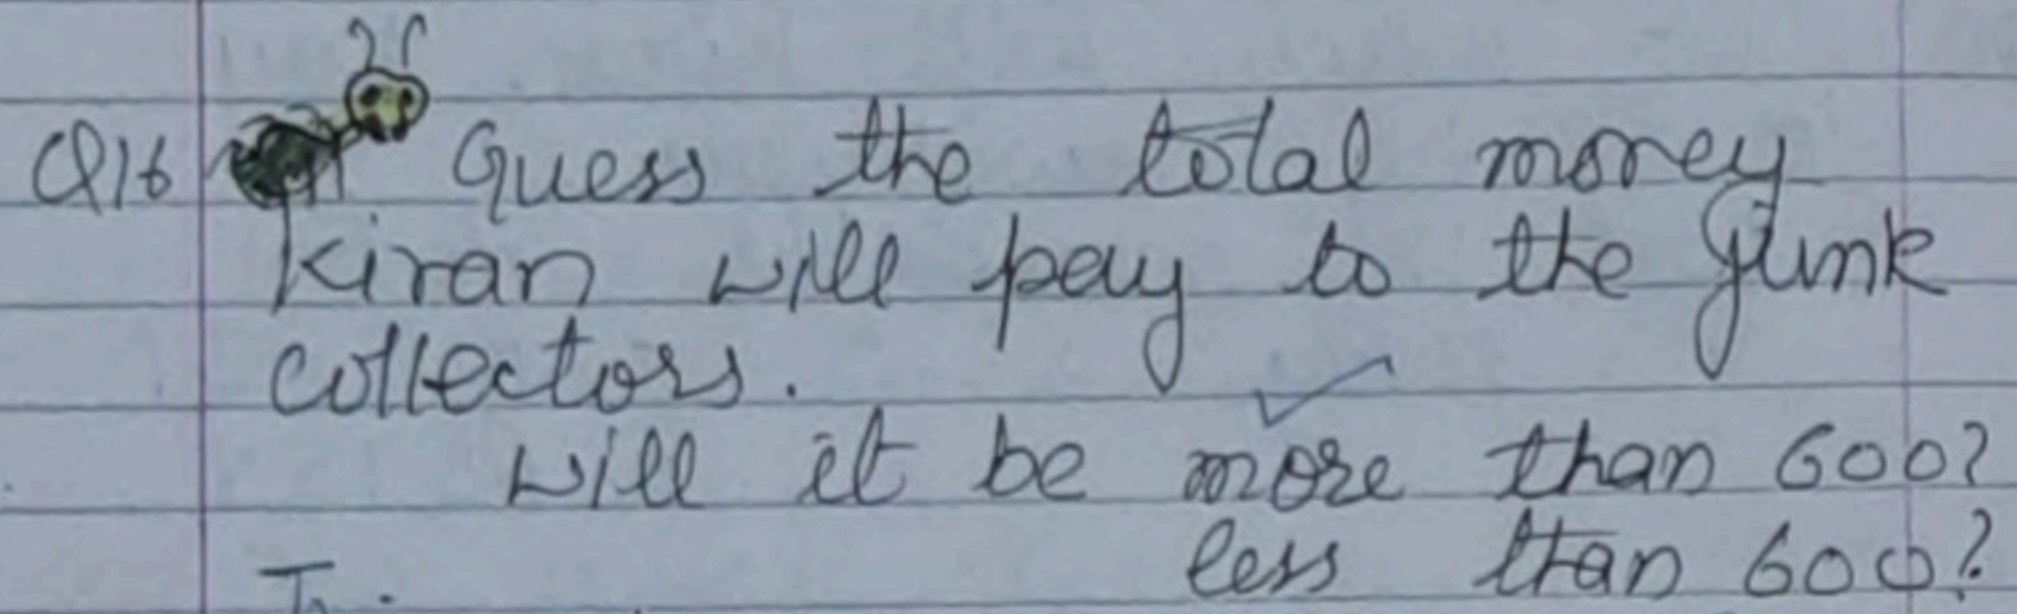 Q16 Guess the total money
Kiran will pay to the junk
collectors.
will it be more than 600?
less than 600?